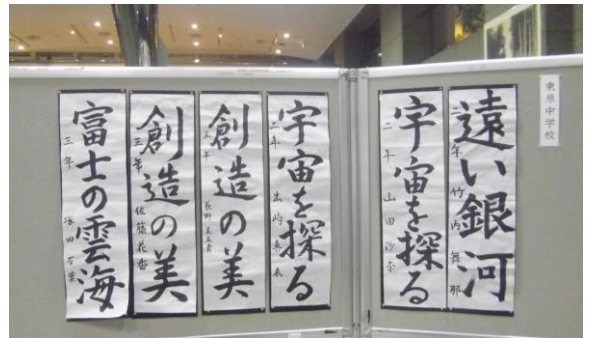 東原中学校
遠い銀河
二年 竹内 舞那
宇宙を探る
二年 山田 沙奈
宇宙を探る
二年
創造の美
三年
創造の美
三年 佐藤花
富士の雲海
三年